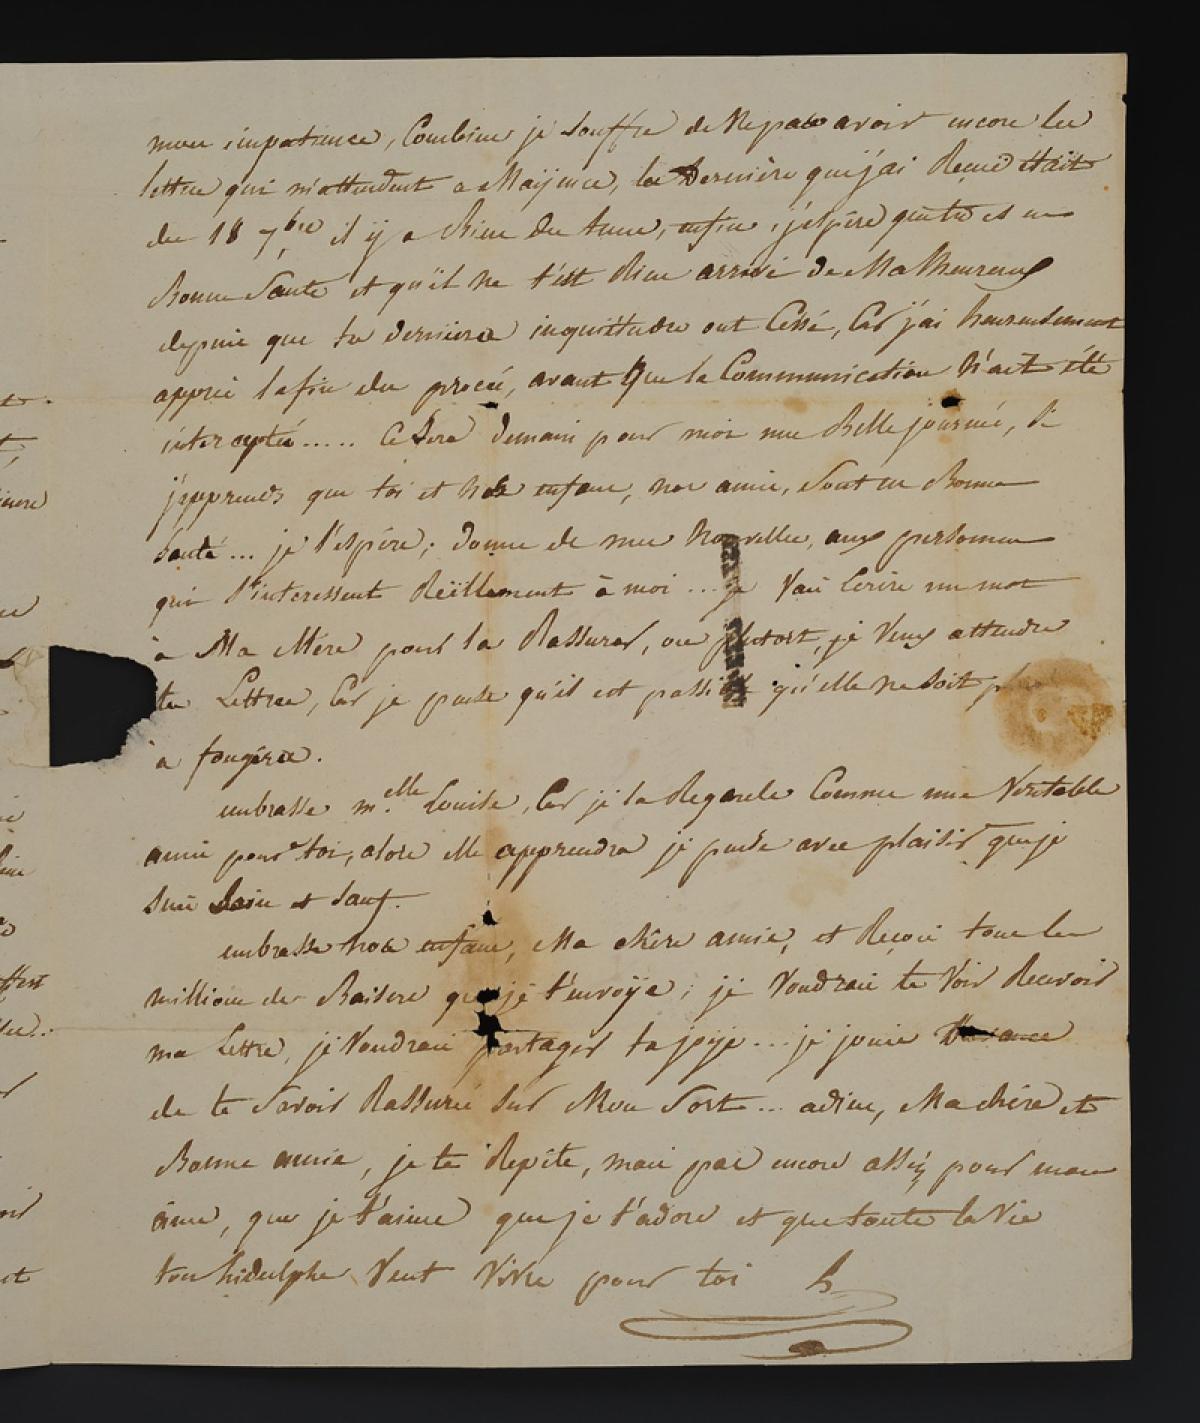 mon impatience, Combien je Souffre de Ne pas avoir encore les
lettres qui m'attendent a Maÿence, la Dernière que j'ai Reçue était
du 18 7bre il y a Bien du tems, enfin, j'espère que tu es en
Bonne Santé et qu'il ne t'est Rien arrivé de Malheureux
depuis que tes dernieres inquiétudes ont Cessé, Car j'ai heureusement
appris la fin du procès, avant que la Communication N'ait été
intercepté..... Ce Sera demain pour moi une Belle journée, Si
j'apprends que toi et Nos enfans, nos amis, Sont en Bonne
Santé... je l'espère; donne de mes Nouvelles, aux personnes
qui S'interessent Réëllement à moi ... je Vais Ecrire un mot
à Ma Mère pour la Rassurer, ou plutost, je Veux attendre
tes Lettres, Car je pense qu'il est possible qu'elle ne Soit
à fougères.
embrasse m.elle Louise, Car je la Regarde Comme une Veritable
amie pour toi, alors elle apprendra je pense avec plaisir que je
Suis Sain et Sauf.
embrasse nos enfans, Ma chère amie, et Reçois tous les
millions de Baisers que je t'envoÿe; je Voudrais te Voir Recevoir
ma Lettre, je Voudrais partager ta joÿe... je jouis d'avance
de te Savoir Rassurée Sur Mon Sort... adieu, Ma chère et
Bonne amie, je te Repète, mais pas encore assés pour mon
âme, que je t'aime que je t'adore et que toute la Vie
ton hidulphe Veut Vivre pour toi h